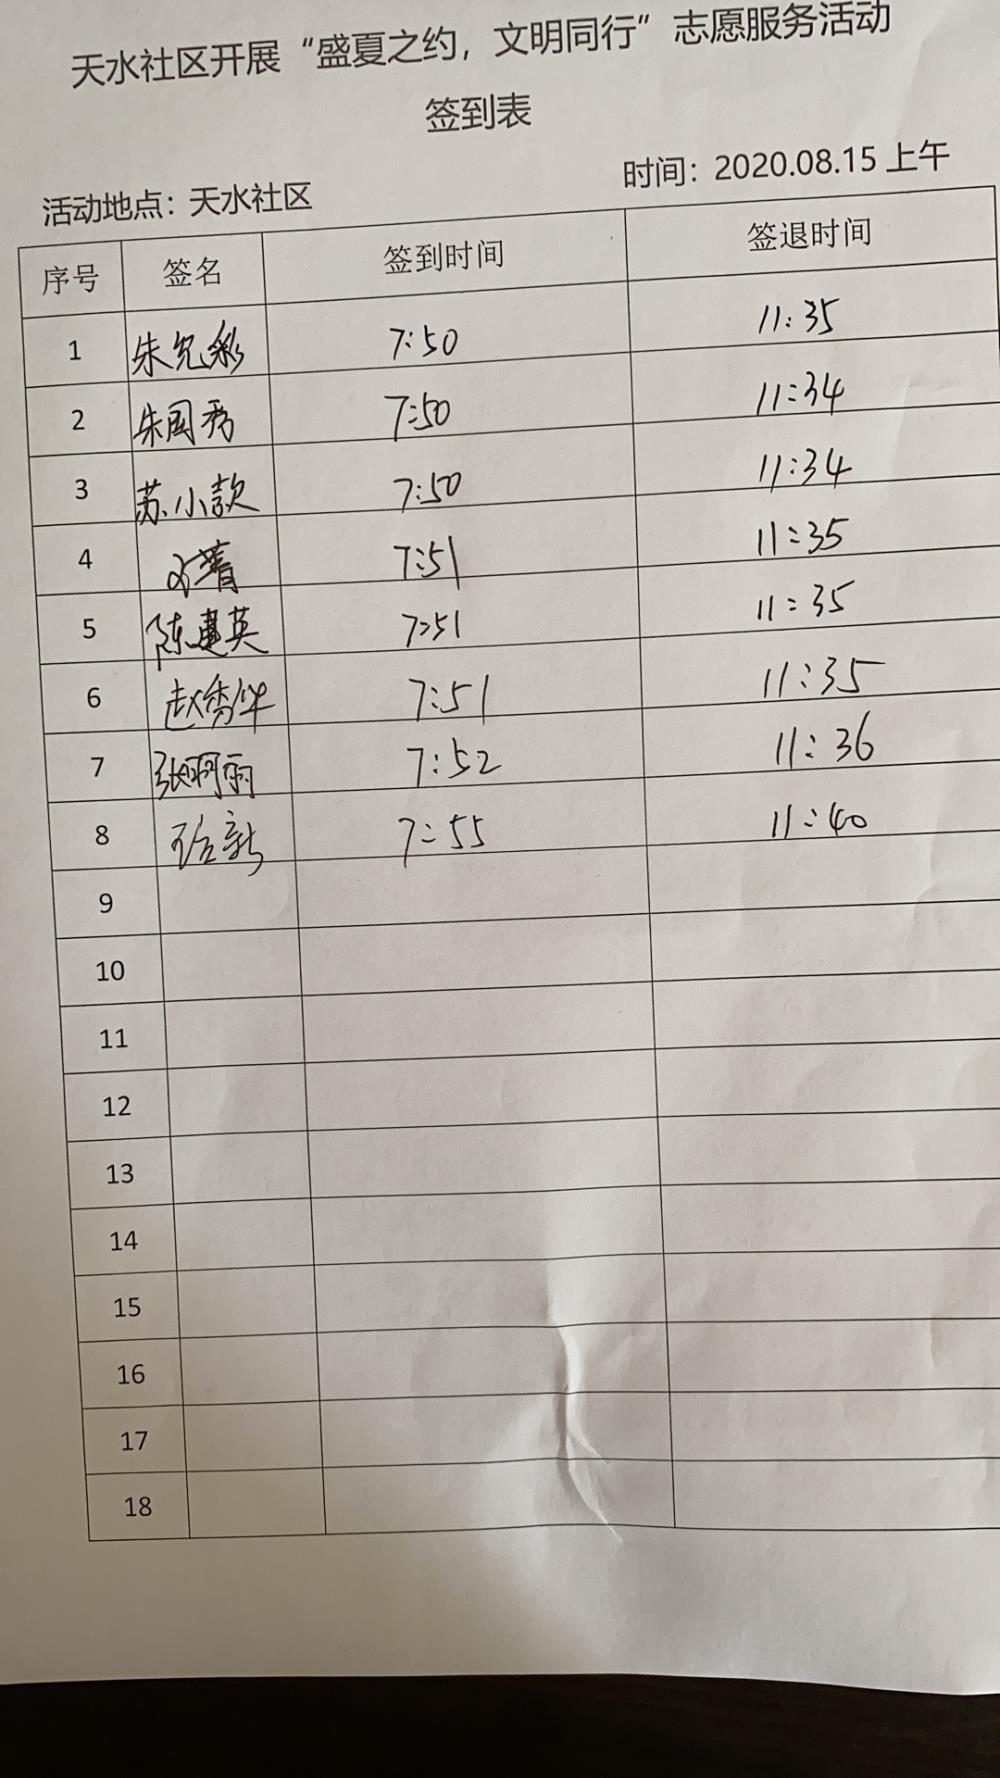 天水社区开展“盛夏之约，文明同行”志愿服务活动
签到表
活动地点：天水社区 时间：2020.08.15 上午
序号 签名 签到时间 签退时间
1 朱允彩 7:50 11:35
2 朱国秀 7:50 11:34
3 苏小款 7:50 11:34
4 7:51 11:35
5 陈建英 7:51 11:35
6 赵秀华 7:51 11:35
7 张啊丽 7:52 11:36
8 7:55 11:40
9
10
11
12
13
14
15
16
17
18